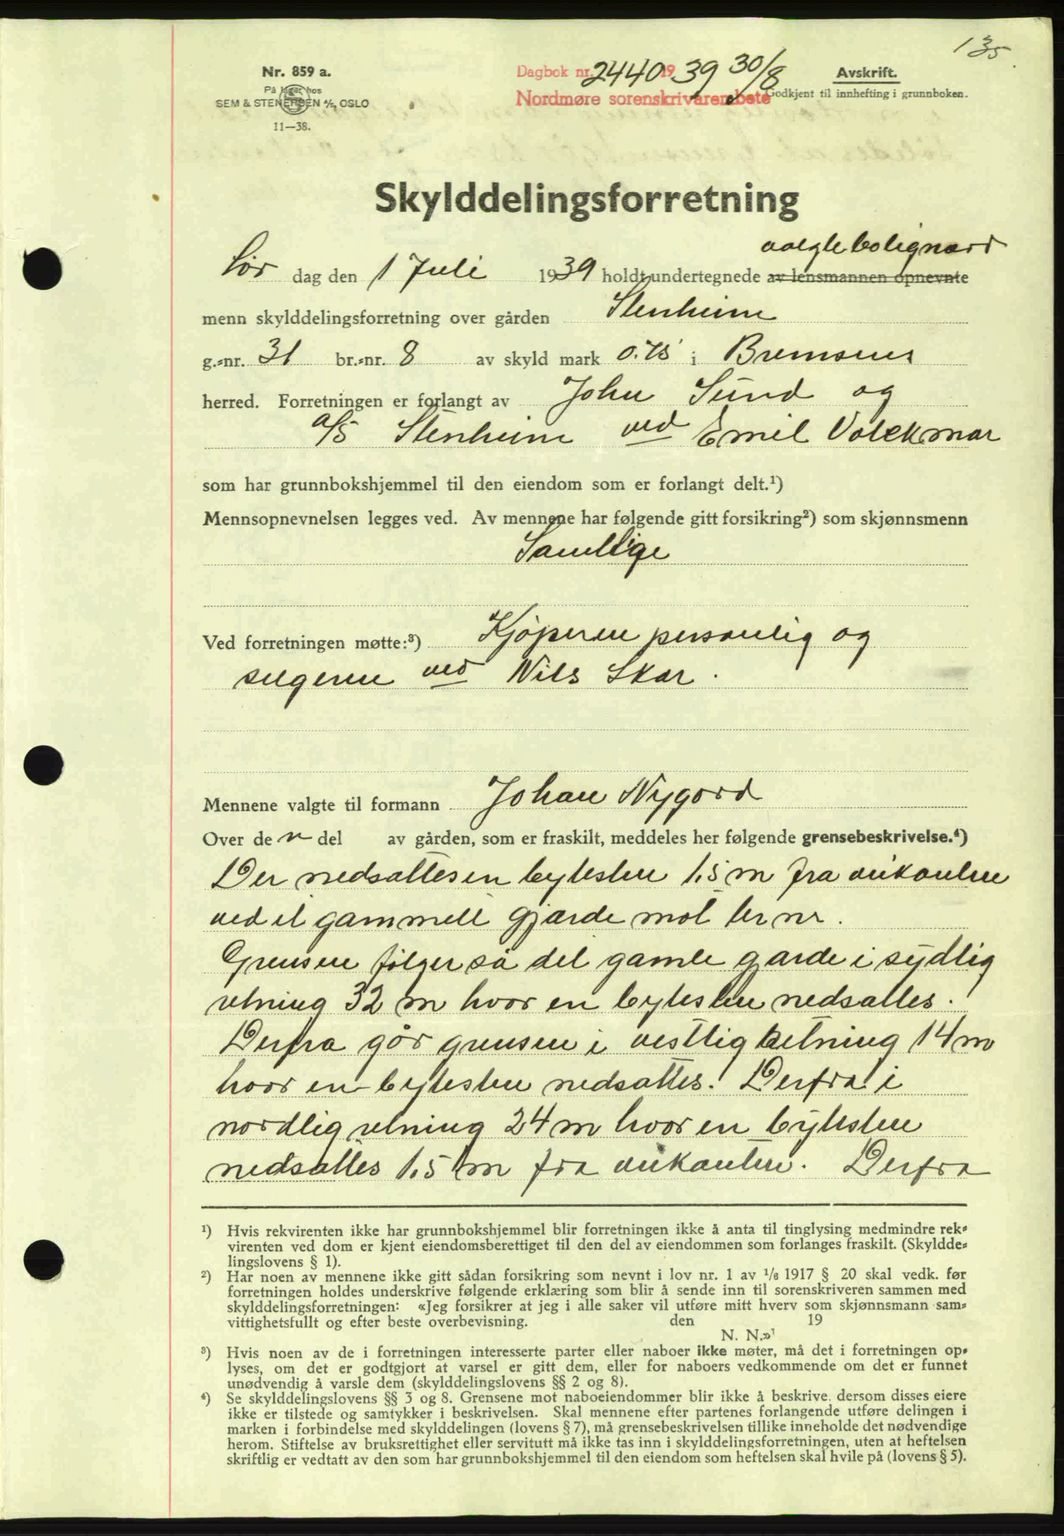 135
Nr. 859 a.
På lager hos
SEM & STENERSEN A/S, OSLO
11—38.
Dagbok nr. 2440 1939 30/8
Nordmøre sorenskriverembete
Avskrift.
Godkjent til innhefting i grunnboken.
Skylddelingsforretning
valgte bolignævd
Lør dag den 1 Juli 1939 holdt undertegnede av lensmannen opnevnte
menn skylddelingsforretning over gården Stenheim
g.-nr. 31 br.-nr. 8 av skyld mark 0.75 i Bremsnes
herred. Forretningen er forlangt av John Sund og
a/s Stenheim ved Emil Volckmar
som har grunnbokshjemmel til den eiendom som er forlangt delt.¹)
Mennsopnevnelsen legges ved. Av mennene har følgende gitt forsikring²) som skjønnsmenn
Samtlige
Ved forretningen møtte:³) Kjøperen personlig og
selgeren ved Nils Skar.
Mennene valgte til formann Johan Nygord
Over de n del av gården, som er fraskilt, meddeles her følgende grensebeskrivelse.⁴)
Der nedsattes en bytesten 1,5 m fra veikanten
ved et gammelt gjærde mot br nr.
Grensen følger så det gamle gjærde i sydlig
retning 32 m hvor en bytesten nedsattes.
Derfra går grensen i vestlig retning 14 m
hvor en bytesten nedsattes. Derfra i
nordlig retning 24 m hvor en bytesten
nedsattes 1,5 m fra veikanten. Derfra
¹) Hvis rekvirenten ikke har grunnbokshjemmel blir forretningen ikke å anta til tinglysing medmindre rek-
virenten ved dom er kjent eiendomsberettiget til den del av eiendommen som forlanges fraskilt. (Skyldde-
lingslovens § 1).
²) Har noen av mennene ikke gitt sådan forsikring som nevnt i lov nr. 1 av 1/6 1917 § 20 skal vedk. før
forretningen holdes underskrive følgende erklæring som blir å sende inn til sorenskriveren sammen med
skylddelingsforretningen: «Jeg forsikrer at jeg i alle saker vil utføre mitt hverv som skjønnsmann sam-
vittighetsfullt og efter beste overbevisning. den 19
N. N.»
³) Hvis noen av de i forretningen interesserte parter eller naboer ikke møter, må det i forretningen op-
lyses, om det er godtgjort at varsel er gitt dem, eller for naboers vedkommende om det er funnet
unødvendig å varsle dem (skylddelingslovens §§ 2 og 8).
⁴) Se skylddelingslovens §§ 3 og 8. Grensene mot naboeiendommer blir ikke å beskrive, dersom disses eiere
ikke er tilstede og samtykker i beskrivelsen. Skal mennene efter partenes forlangende utføre delingen i
marken i forbindelse med skylddelingen (lovens § 7), må grensebeskrivelsen tillike inneholde det nødvendige
herom. Stiftelse av bruksrettighet eller servitutt må ikke tas inn i skylddelingsforretningen, uten at heftelsen
skriftlig er vedtatt av den som har grunnbokshjemmel til den eiendom som heftelsen skal hvile på (lovens § 5).